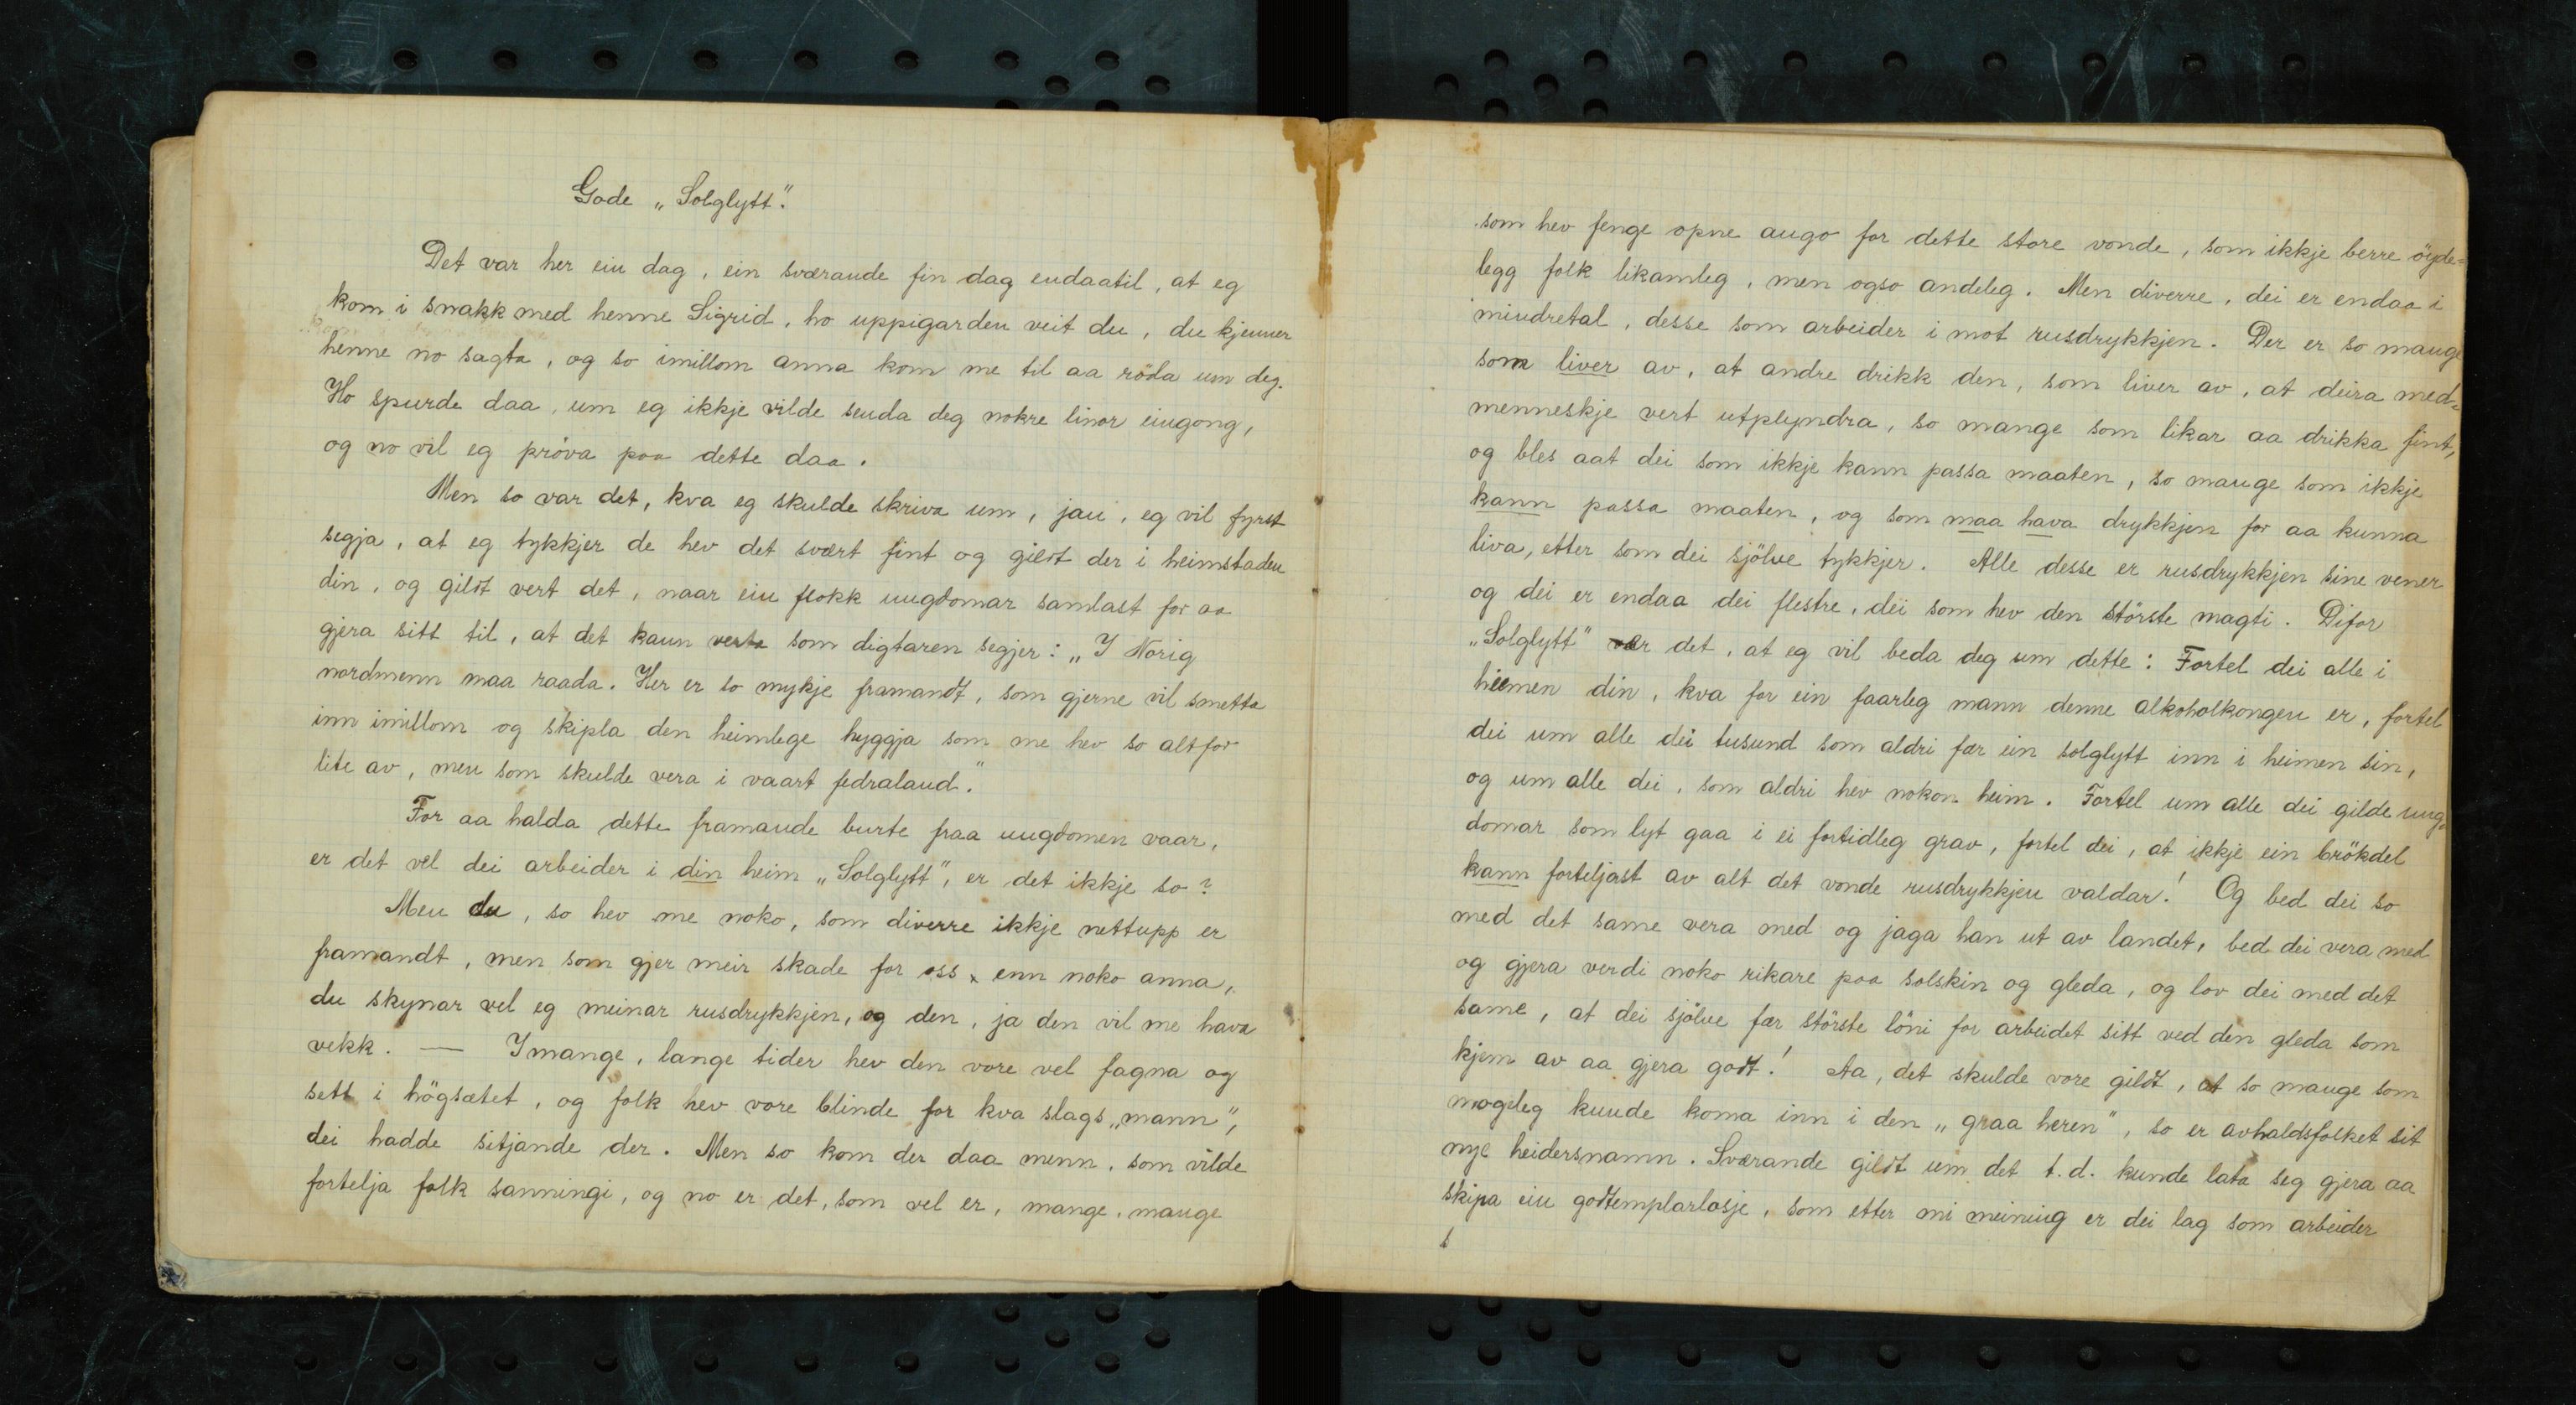 Gode „Solglytt".
Det var her ein dag, ein sværande fin dag endaatil, at eg
kom i snakk med henne Sigrid, ho uppigarden veit du, du kjenner
henne no sagta, og so imillom anna kom me til aa röda um deg.
Ho spurde daa, um eg ikkje vilde senda deg nokre linor eingong,
og no vil eg pröva paa dette daa.
Men so var det, kva eg skulde skriva um, jau, eg vil fyrst
segja, at eg tykkjer de hev det svært fint og gildt der i heimstaden
din, og gildt vert det, naar ein flokk ungdomar samlast for aa
gjera sitt til, at det kann verta som digtaren segjer: „I Norig
nordmenn maa raada. Her er so mykje framandt, som gjerne vil smetta
inn imillom og skipla den heimlege hyggja som me hev so altfor
lite av, men som skulde vera i vaart fedraland."
For aa halda dette framande burte fraa ungdomen vaar,
er det vel dei arbeider i din heim „Solglytt", er det ikkje so?
Men du, so hev me noko, som diverre ikkje nettupp er
framandt, men som gjer meir skade for oss enn noko anna,
du skynar vel eg meinar rusdrykkjen, og den, ja den vil me hava
vekk. — I mange, lange tider hev den vore vel fagna og
sett i högsætet, og folk hev vore blinde for kva slags „mann",
dei hadde sitjande der. Men so kom der daa menn, som vilde
fortelja folk sanningi, og no er det, som vel er, mange, mange
som hev fenge opne augo for dette store vonde, som ikkje berre öyde=
legg folk likamleg, men ogso andeleg. Men diverre, dei er endaa i
mindretal, desse som arbeider i mot rusdrykkjen. Der er so mange
som liver av, at andre drikk den, som liver av, at deira med=
menneskje vert utplyndra, so mange som likar aa drikka fint,
og bles aat dei som ikkje kann passa maaten, so mange som ikkje
kann passa maaten, og som maa hava drykkjen for aa kunna
liva, etter som dei sjölve tykkjer. Alle desse er rusdrykkjen sine vener
og dei er endaa dei flestre, dei som hev den störste magti. Difor
„Solglytt" var det, at eg vil beda deg um dette: Fortel dei alle i
heimen din, kva for ein faarleg mann denne alkoholkongen er, fortel
dei um alle dei tusund som aldri fær ein solglytt inn i heimen sin,
og um alle dei, som aldri hev nokon heim. Fortel um alle dei gilde ung=
domar som lyt gaa i ei fortidleg grav, fortel dei, at ikkje ein brökdel
kann forteljast av alt det vonde rusdrykkjen valdar! Og bed dei so
med det same vera med og jaga han ut av landet, bed dei vera med
og gjera verdi noko rikare paa solskin og gleda, og lov dei med det
same, at dei sjölve fær störste löni for arbeidet sitt ved den gleda som
kjem av aa gjera godt! Aa, det skulde vore gildt, at so mange som
mogeleg kunde koma inn i den „graa heren", so er avhaldsfolket sit
nye heidersnamn. Sværande gildt um det t.d. kunde lata seg gjera aa
skipa ein godtemplarlosje, som etter mi meining er dei lag som arbeider